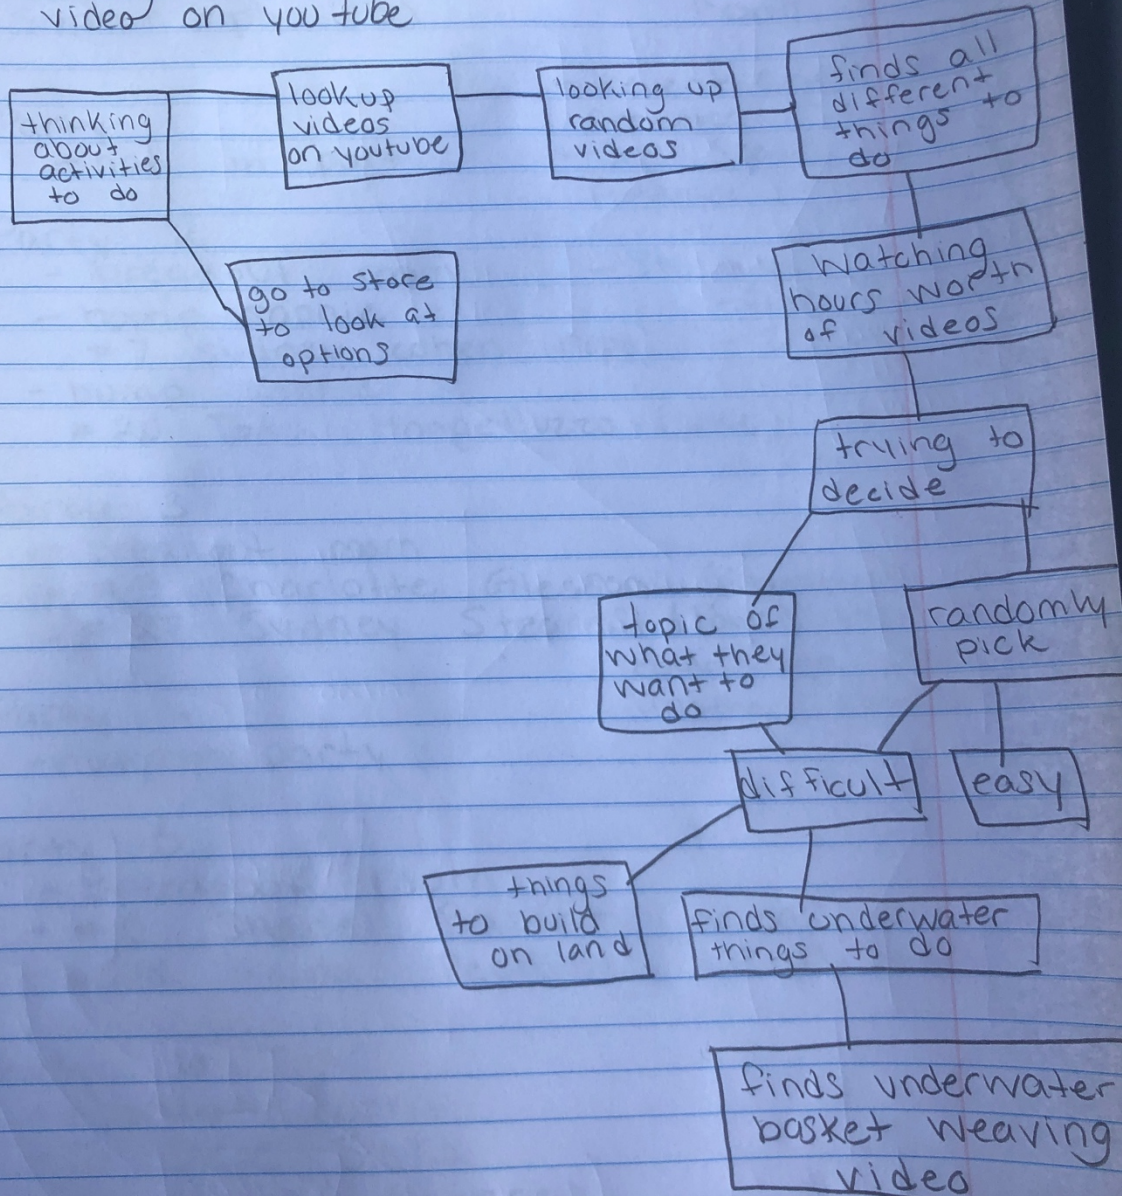 video on youtube
thinking
about
activities
to do
lookup
videos
on youtube
looking up
random
videos
finds all
different
things to
do
go to store
to look at
options
watching
hours worth
of videos
trying to
decide
topic of
what they
want to
do
randomly
pick
difficult
easy
things
to build
on land
finds underwater
things to do
finds underwater
basket weaving
video